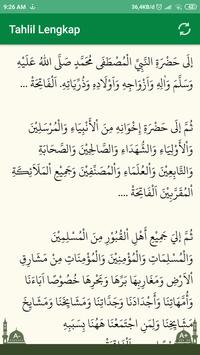 9:26 AM 36,4KB/s
Tahlil Lengkap
إِلَى حَضْرَةِ النَّبِيِّ الْمُصْطَفَى مُحَمَّدٍ صَلَّى اللهُ عَلَيْهِ
وَسَلَّمَ وَاٰلِهِ وَاَزْوَاجِهِ وَاَوْلَادِهِ وَذُرِّيَّاتِهِ. اَلْفَاتِحَةُ ...
ثُمَّ إِلَى حَضْرَةِ إِخْوَانِهِ مِنَ الْاَنْبِيَاءِ وَالْمُرْسَلِيْنَ
وَالْاَوْلِيَاءِ وَالشُّهَدَاءِ وَالصَّالِحِيْنَ وَالصَّحَابَةِ
وَالتَّابِعِيْنَ وَالْعُلَمَاءِ وَالْمُصَنِّفِيْنَ وَجَمِيْعِ الْمَلَآئِكَةِ
الْمُقَرَّبِيْنَ. اَلْفَاتِحَةُ ...
ثُمَّ إِلَى جَمِيْعِ أَهْلِ الْقُبُوْرِ مِنَ الْمُسْلِمِيْنَ
وَالْمُسْلِمَاتِ وَالْمُؤْمِنِيْنَ وَالْمُؤْمِنَاتِ مِنْ مَشَارِقِ
الْاَرْضِ وَمَغَارِبِهَا بَرِّهَا وَبَحْرِهَا خُصُوْصًا اٰبَاءَنَا
وَأُمَّهَاتِنَا وَأَجْدَادَنَا وَجَدَّاتِنَا وَمَشَايِخَنَا
وَمَشَايِخَ مَشَايِخِنَا وَلِمَنِ اجْتَمَعْنَا هٰهُنَا بِسَبَبِهِ
A- A+